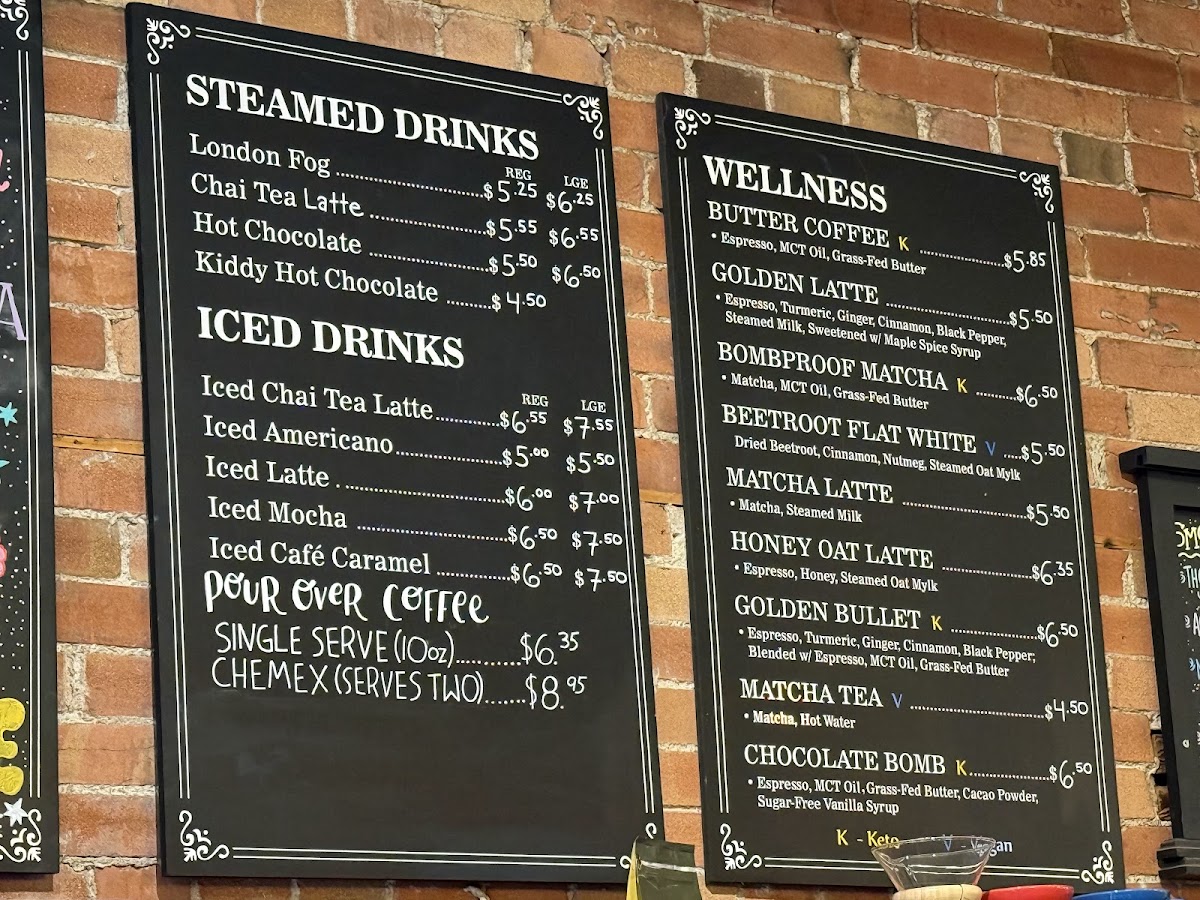 STEAMED DRINKS
REG LGE
London Fog ........ $5.25 $6.25
Chai Tea Latte ........ $5.55 $6.55
Hot Chocolate ........ $5.50 $6.50
Kiddy Hot Chocolate ........ $4.50
ICED DRINKS
REG LGE
Iced Chai Tea Latte ........ $6.55 $7.55
Iced Americano ........ $5.00 $5.50
Iced Latte ........ $6.00 $7.00
Iced Mocha ........ $6.50 $7.50
Iced Café Caramel ........ $6.50 $7.50
POUR OVER COFFEE
SINGLE SERVE (10oz) ........ $6.35
CHEMEX (SERVES TWO) ...... $8.95
WELLNESS
BUTTER COFFEE K ........ $5.85
• Espresso, MCT Oil, Grass-Fed Butter
GOLDEN LATTE ........ $5.50
• Espresso, Turmeric, Ginger, Cinnamon, Black Pepper,
Steamed Milk, Sweetened w/ Maple Spice Syrup
BOMBPROOF MATCHA K ........ $6.50
• Matcha, MCT Oil, Grass-Fed Butter
BEETROOT FLAT WHITE V .... $5.50
Dried Beetroot, Cinnamon, Nutmeg, Steamed Oat Mylk
MATCHA LATTE ........ $5.50
• Matcha, Steamed Milk
HONEY OAT LATTE ........ $6.35
• Espresso, Honey, Steamed Oat Mylk
GOLDEN BULLET K ........ $6.50
• Espresso, Turmeric, Ginger, Cinnamon, Black Pepper;
Blended w/ Espresso, MCT Oil, Grass-Fed Butter
MATCHA TEA V ........ $4.50
• Matcha, Hot Water
CHOCOLATE BOMB K ........ $6.50
• Espresso, MCT Oil, Grass-Fed Butter, Cacao Powder,
Sugar-Free Vanilla Syrup
K - Keto V Vegan